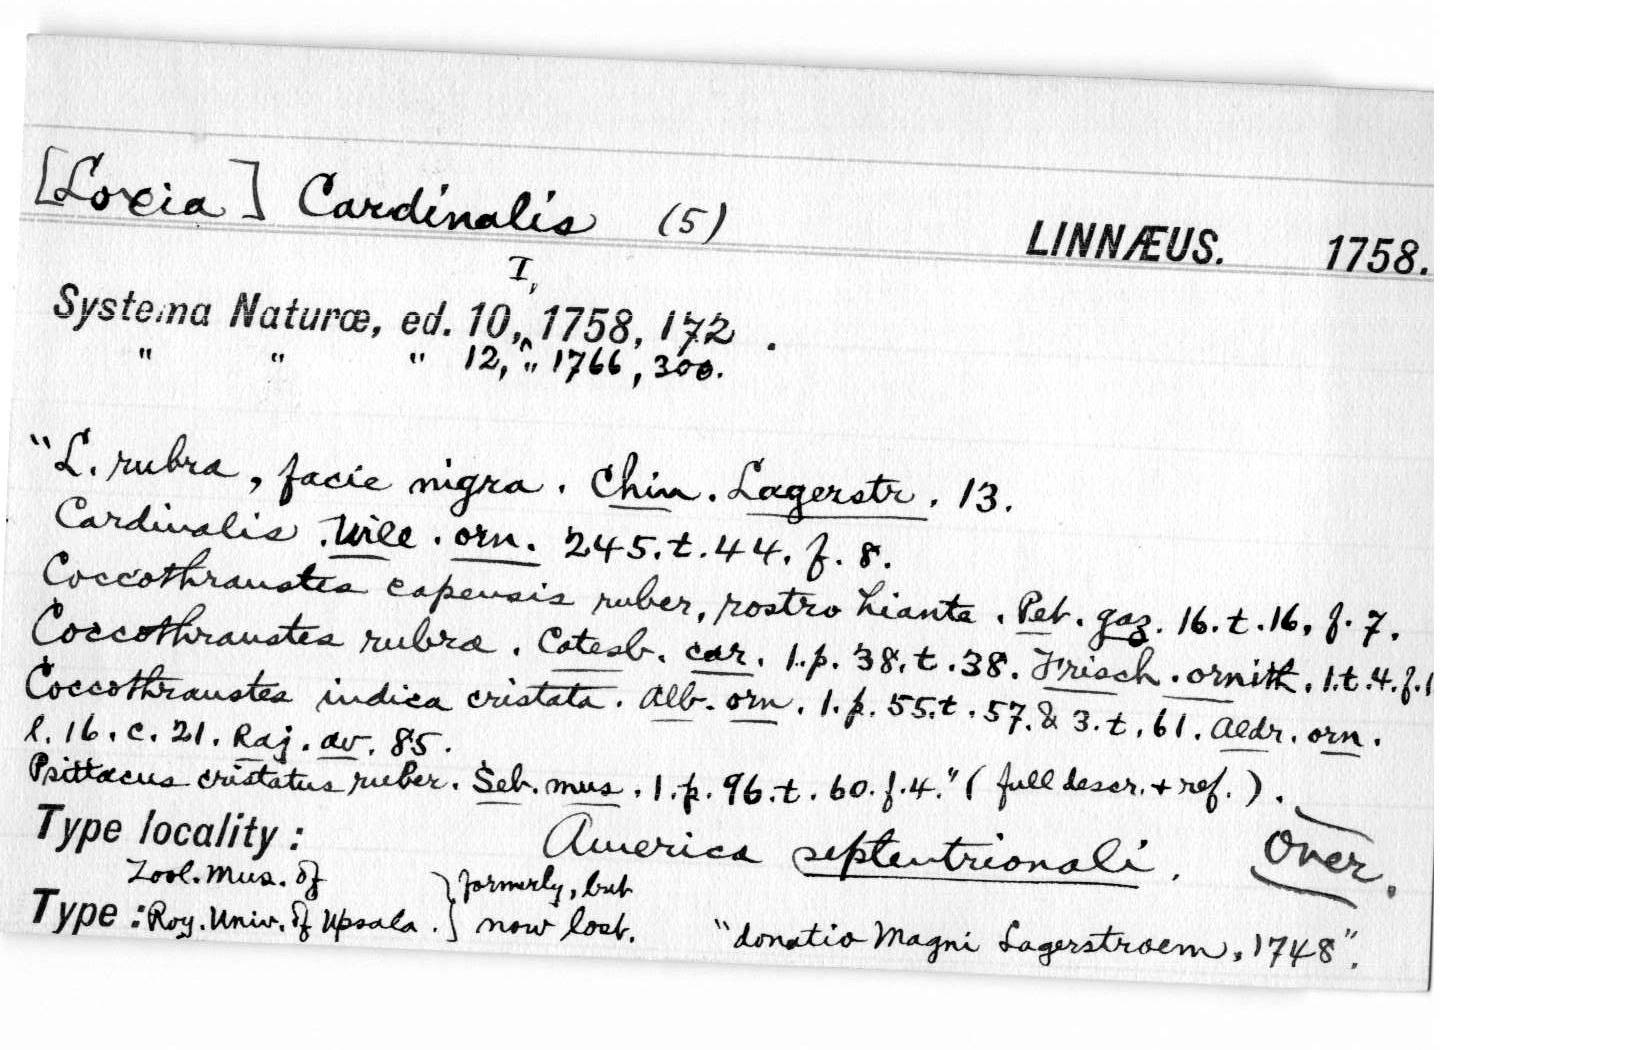 [Loxia] Cardinalis (5) LINNÆUS. 1758.
I,
Systema Naturæ, ed. 10,^ 1758, 172.
" " " 12, " 1766, 300.
"L. rubra, facie nigra. Chin. Lagerstr. 13.
Cardinalis. Will. orn. 245. t. 44. f. 8.
Coccothraustes capensis ruber, rostro hiante. Pet. gaz. 16. t. 16, f. 7.
Coccothraustes rubra. Catesb. car. 1. p. 38. t. 38. Frisch. ornith. 1. t. 4. f. 1
Coccothraustes indica cristata. Alb. orn. 1. p. 55. t. 57. & 3. t. 61. Aldr. orn.
l. 16. c. 21. Raj. av. 85.
Psittacus cristatus ruber. Seb. mus. 1. p. 96. t. 60. f. 4." (full descr. + ref.).
Type locality: America septentrionali. Over.
Zool. Mus. of } formerly, but
Type: Roy. Univ. of Upsala. } now lost. "donatio Magni Lagerstroem, 1748".